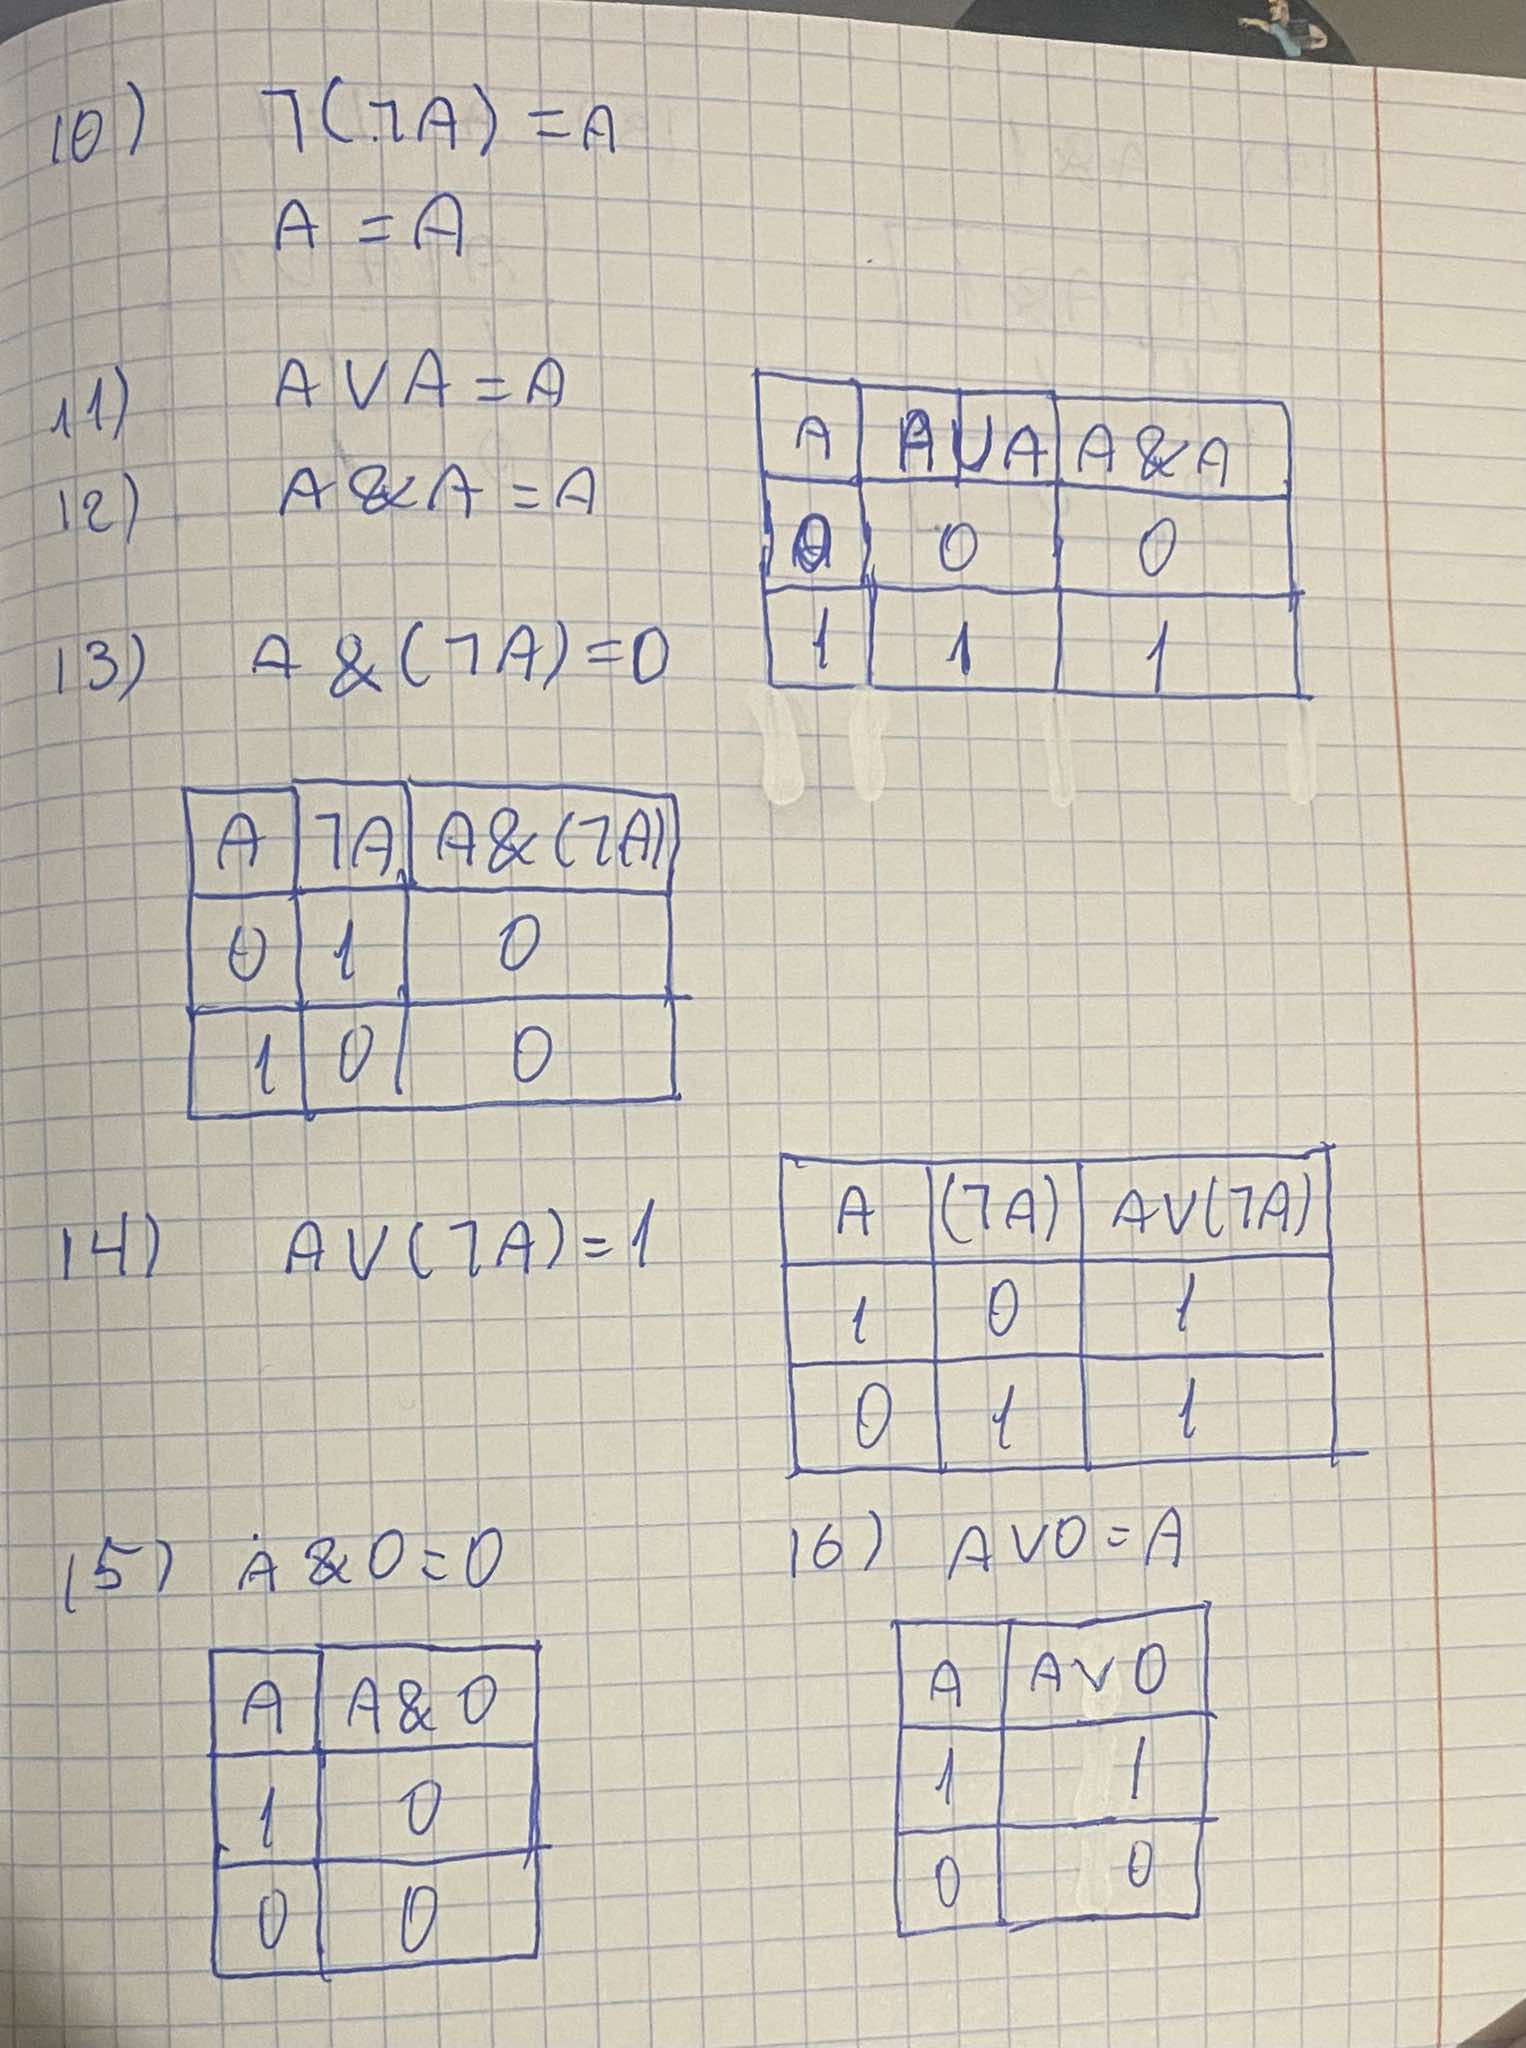 10) ¬(¬A) = A
A = A
11) A V A = A
12) A & A = A
A | A V A | A & A
0 | 0 | 0
1 | 1 | 1
13) A & (¬A) = 0
A | ¬A | A & (¬A)
0 | 1 | 0
1 | 0 | 0
14) A V (¬A) = 1
A | (¬A) | A V (¬A)
1 | 0 | 1
0 | 1 | 1
15) A & 0 = 0
A | A & 0
1 | 0
0 | 0
16) A V 0 = A
A | A V 0
1 | 1
0 | 0